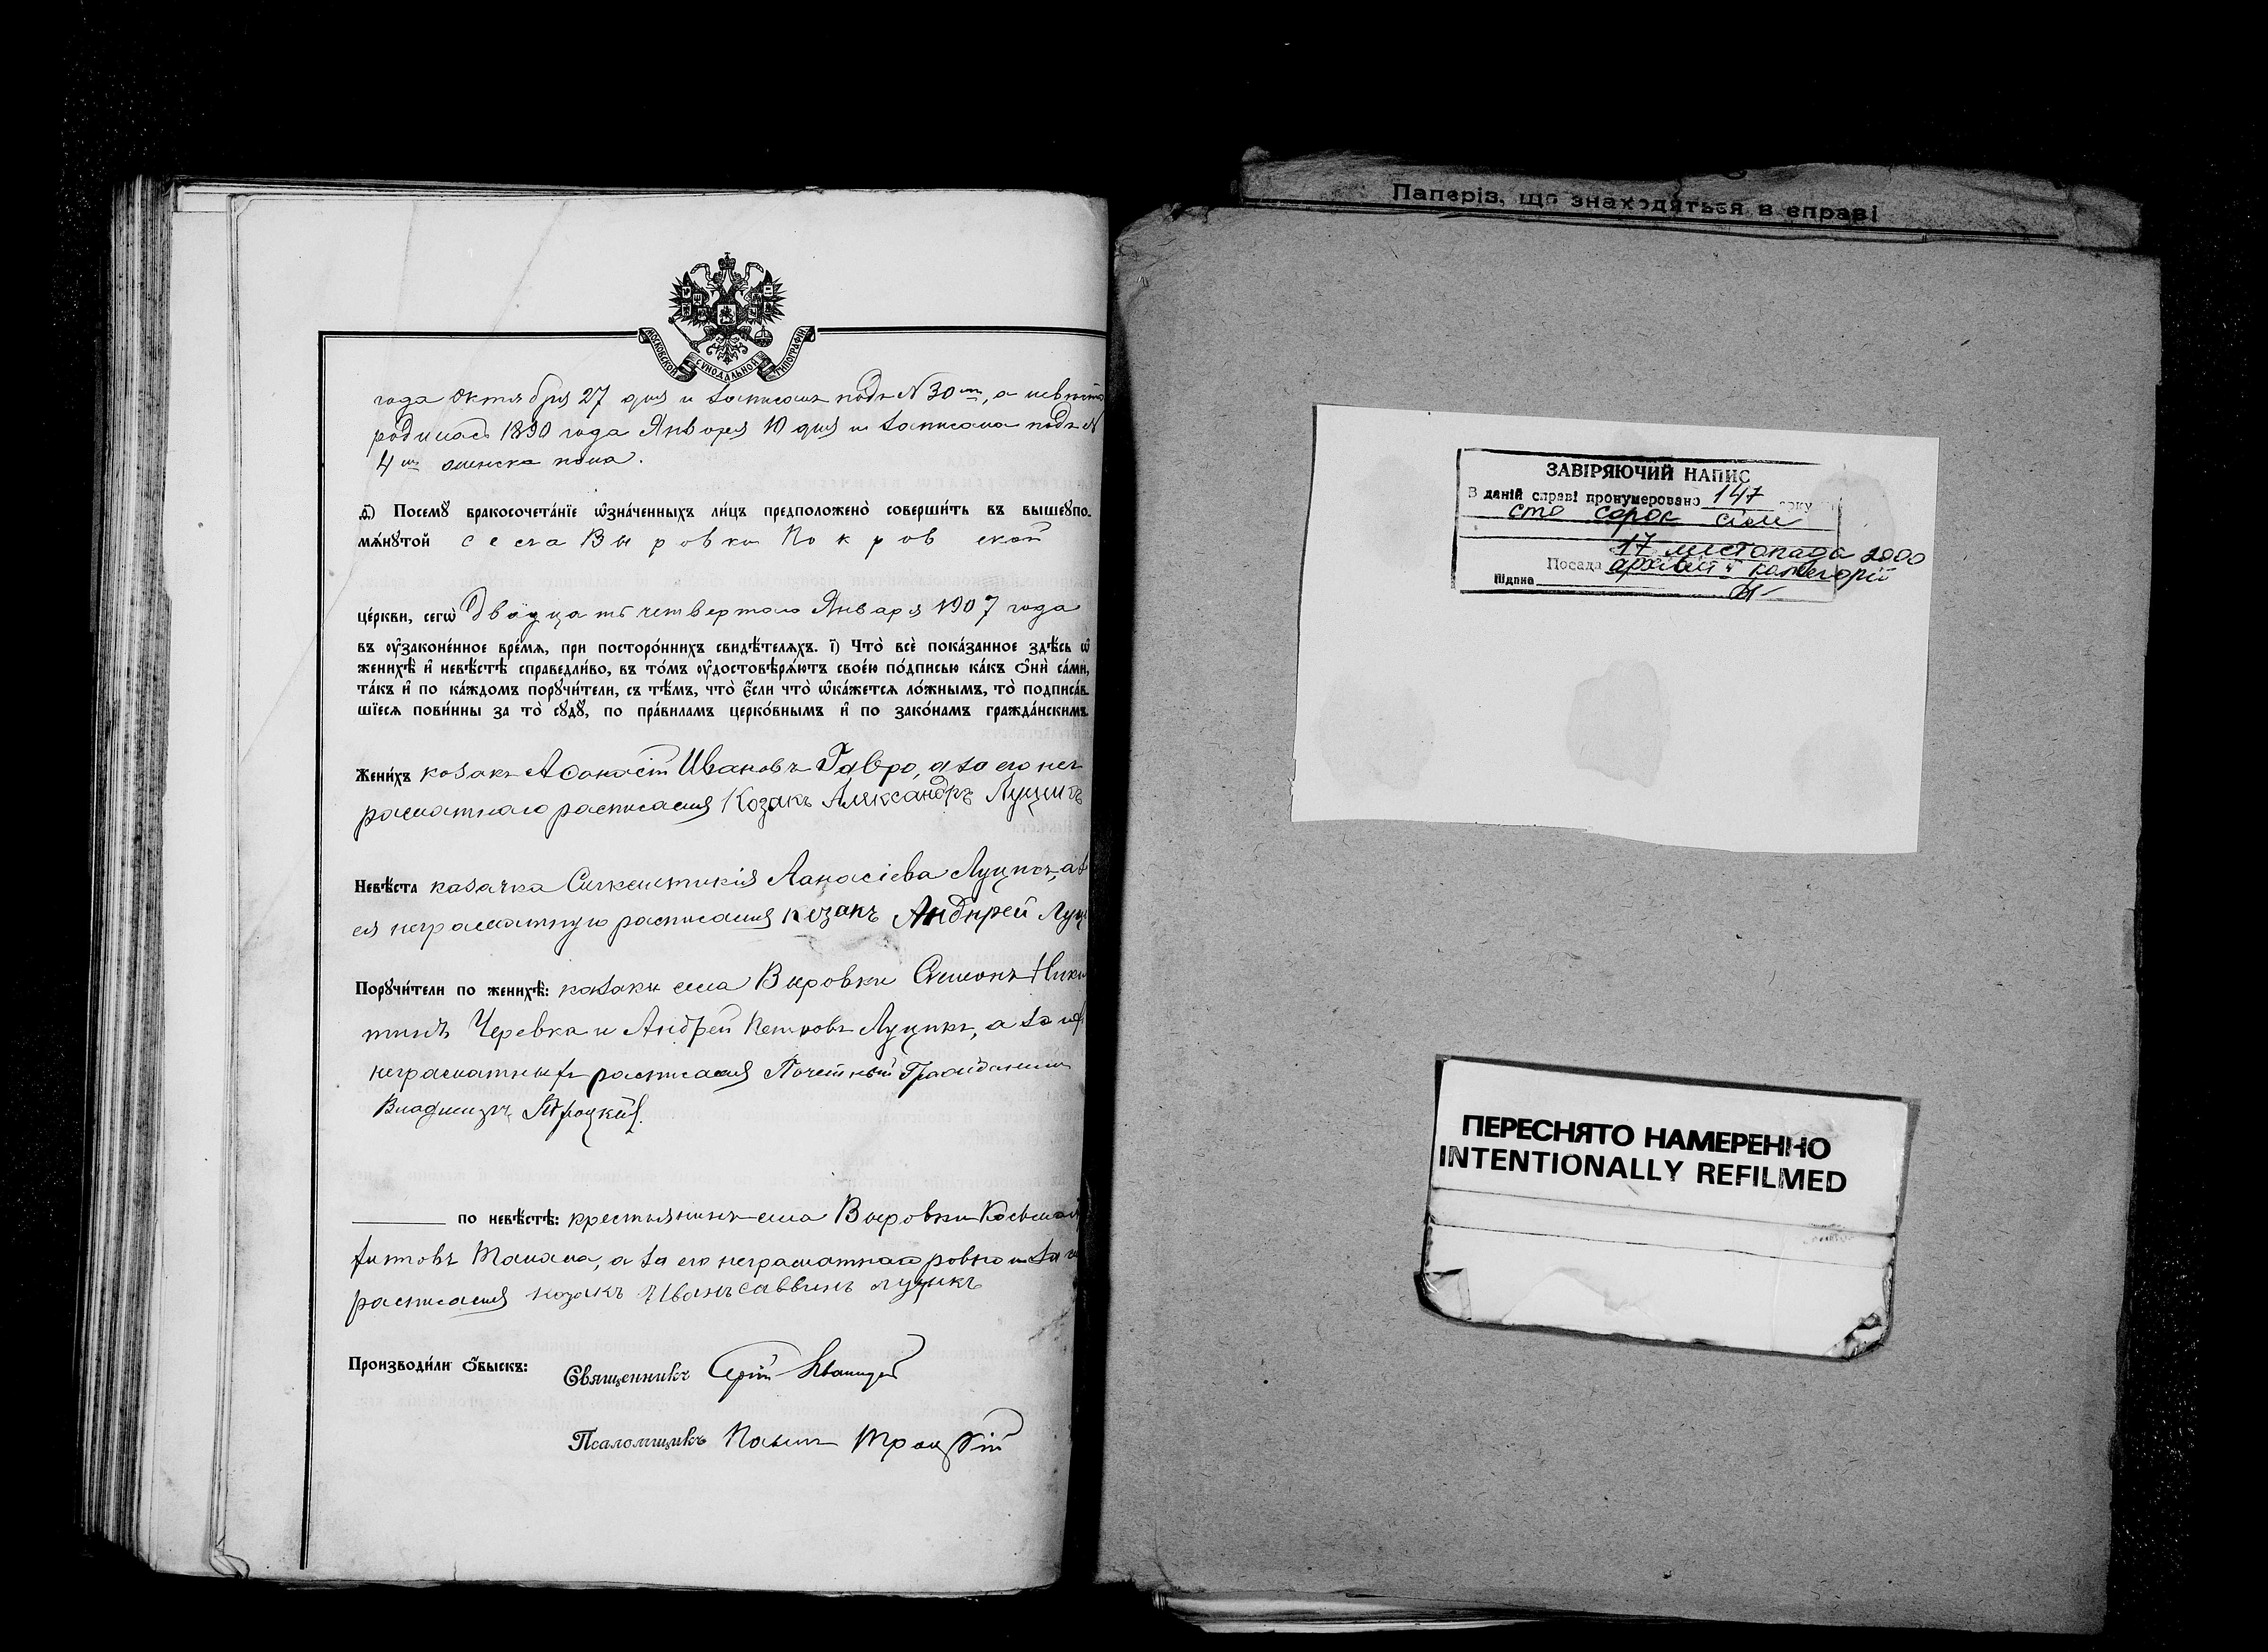 МОСКОВСКОЙ СѴНОДАЛЬНОЙ ТИПОГРАФІИ
года Октября 27 дня и записанъ подъ № 30мъ, а невѣста
родилась 1890 года Января 10 дня и записана подъ №
4мъ женска пола.
д҃) Посемꙋ̀ бракосочета́нїе ѡ҆зна́ченныхъ ли́цъ предположено̀ соверши́ть въ вышеꙋпо-
мѧ́нꙋтой села Выровки Покровской
це́ркви, сегѡ̀ двадцать четвертого Января 1907 года
въ ᲂу҆законе́нное вре́мѧ, при посторо́ннихъ свидѣ́телѧхъ. і҃) Что̀ всѐ пока́занное здѣ́сь ѡ҆
женихѣ̀ и҆ невѣ́стѣ справедли́во, въ то́мъ ᲂу҆достовѣрѧ́ютъ свое́ю по́дписью ка́къ ѻ҆нѝ са́ми,
та́къ и҆ по ка́ждомъ порꙋчи́тели, съ тѣ́мъ, что̀ є҆́сли что̀ ѡ҆ка́жется ло́жнымъ, то̀ подписа́в-
шїесѧ пови́нны за то̀ сꙋдꙋ̀, по пра́виламъ церко́внымъ и҆ по зако́намъ гражда́нскимъ.
Жени́хъ козакъ Афанасій Ивановъ Гавро, а за его нег
раматнаго расписался Козакъ Аляксандръ Луцикъ
Невѣ́ста казачка Синклитикія Афанасіева Луцикъ, а з
ея неграматную расписался козакъ Андырей Луци
Порꙋчи́тели по женихѣ̀: казаки села Выровки Симонъ Ники
тинъ Черевка и Андрей Петровъ Луцикъ, а за нихъ
неграматныхъ расписался Почетный Гражданинъ
Владимиръ Троцкій.
по невѣ́стѣ: крестьянинъ села Выровки Косьма
Титовъ, а за его неграматнаго ровно и за
расписался козакъ Иванъ Саввинъ луцикъ
Производи́ли ѻ҆́быскъ: Священникъ Сергій
Псаломщикъ Павелъ Троцкій
Паперів, що знаходяться в справі
ЗАВІРЯЮЧИЙ НАПИС
В даній справі пронумеровано 147 арку
сто сорок сім
17 листопада 2000
Посада архівіст II категорії
Підпис
ПЕРЕСНЯТО НАМЕРЕННО
INTENTIONALLY REFILMED